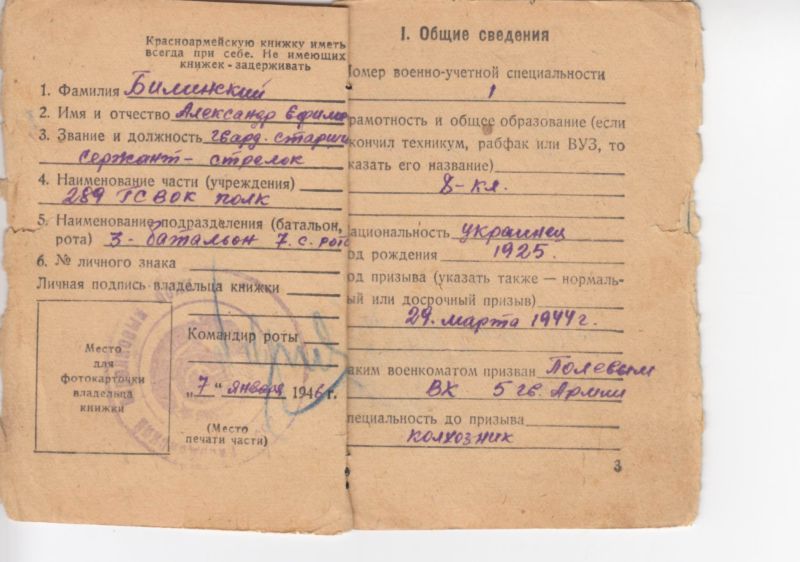 Красноармейскую книжку иметь
всегда при себе. Не имеющих
книжек - задерживать
1. Фамилия Билинский
2. Имя и отчество Александр Ефим
3. Звание и должность гвард. старш
сержант - стрелок
4. Наименование части (учреждения)
289 ГСВОК полк
5. Наименование подразделения (батальон,
рота) 3 - батальон 7. с. рота
6. № личного знака
Личная подпись владельца книжки
Место
для
фотокарточки
владельца
книжки
Командир роты
„7" января 1946 г.
(Место
печати части)
I. Общие сведения
Номер военно-учетной специальности
1
рамотность и общее образование (если
кончил техникум, рабфак или ВУЗ, то
казать его название)
8-кл.
ациональность украинец
од рождения 1925.
од призыва (указать также — нормаль-
ый или досрочный призыв)
29. марта 1944 г.
аким военкоматом призван Полевым
ВК 5 гв. Армии
пециальность до призыва
колхозник
3